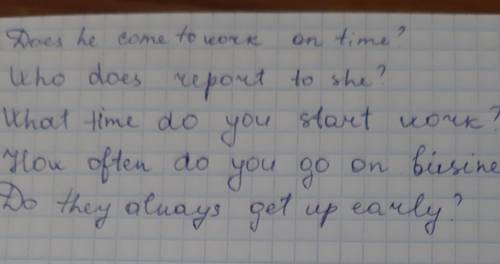 Does he come to work on time?
Who does report to she?
What time do you start work?
How often do you go on busine
Do they always get up early?